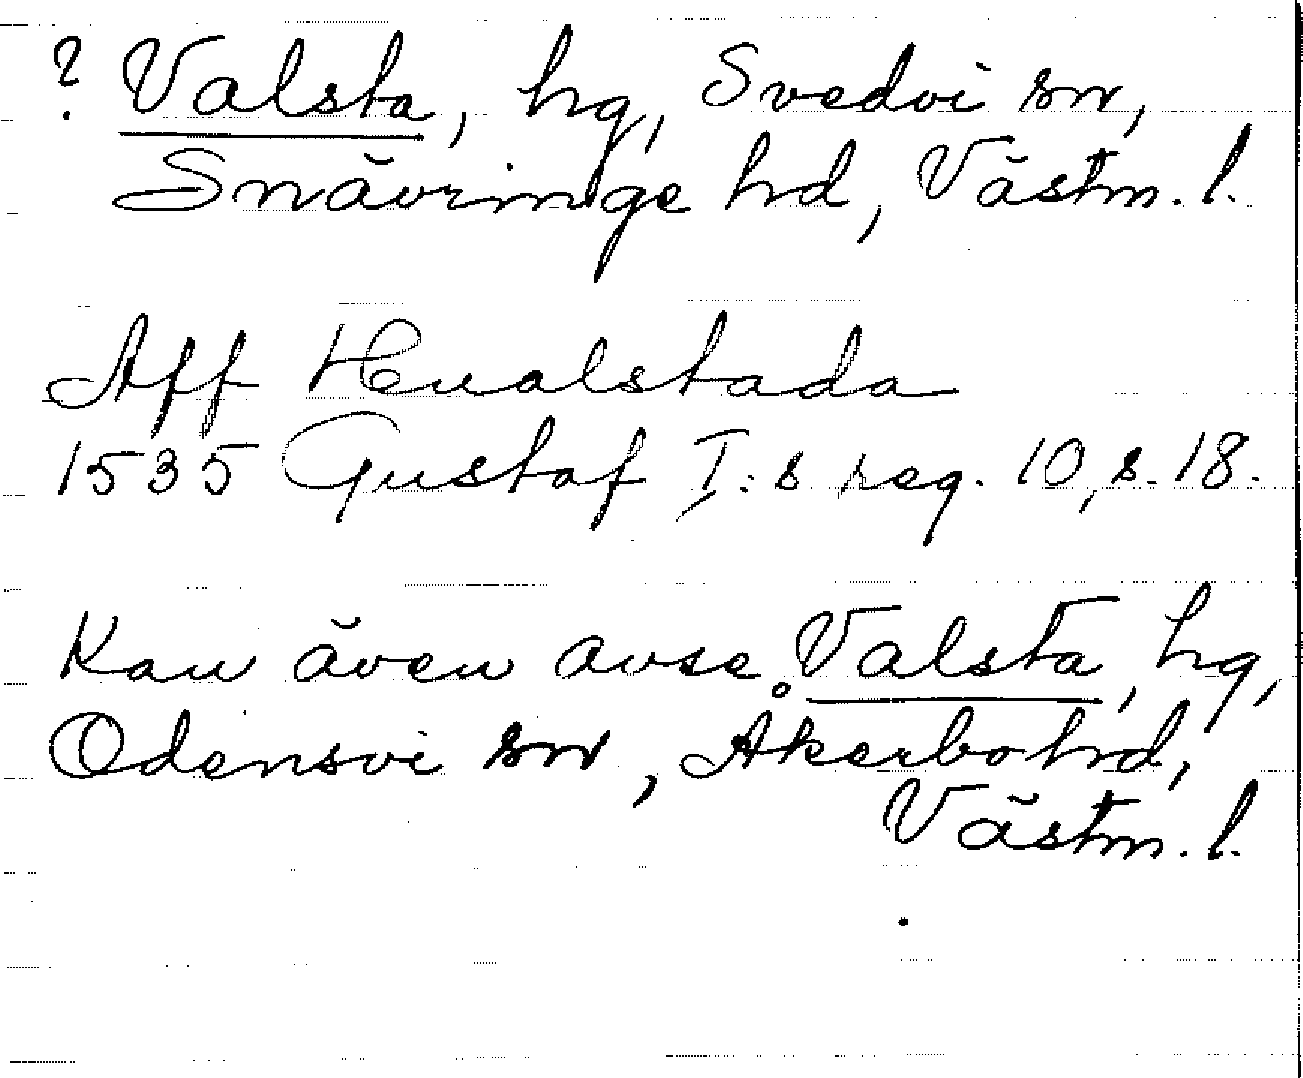 ? Valsta, hg, Svedvi sn,
Snävringe hd, Västm. l.
Aff Hualstada
1535 Gustaf I:s reg. 10, s. 18.
Kan även avse Valsta, hg,
Odensvi sn, Åkerbo hd,
Västm. l.